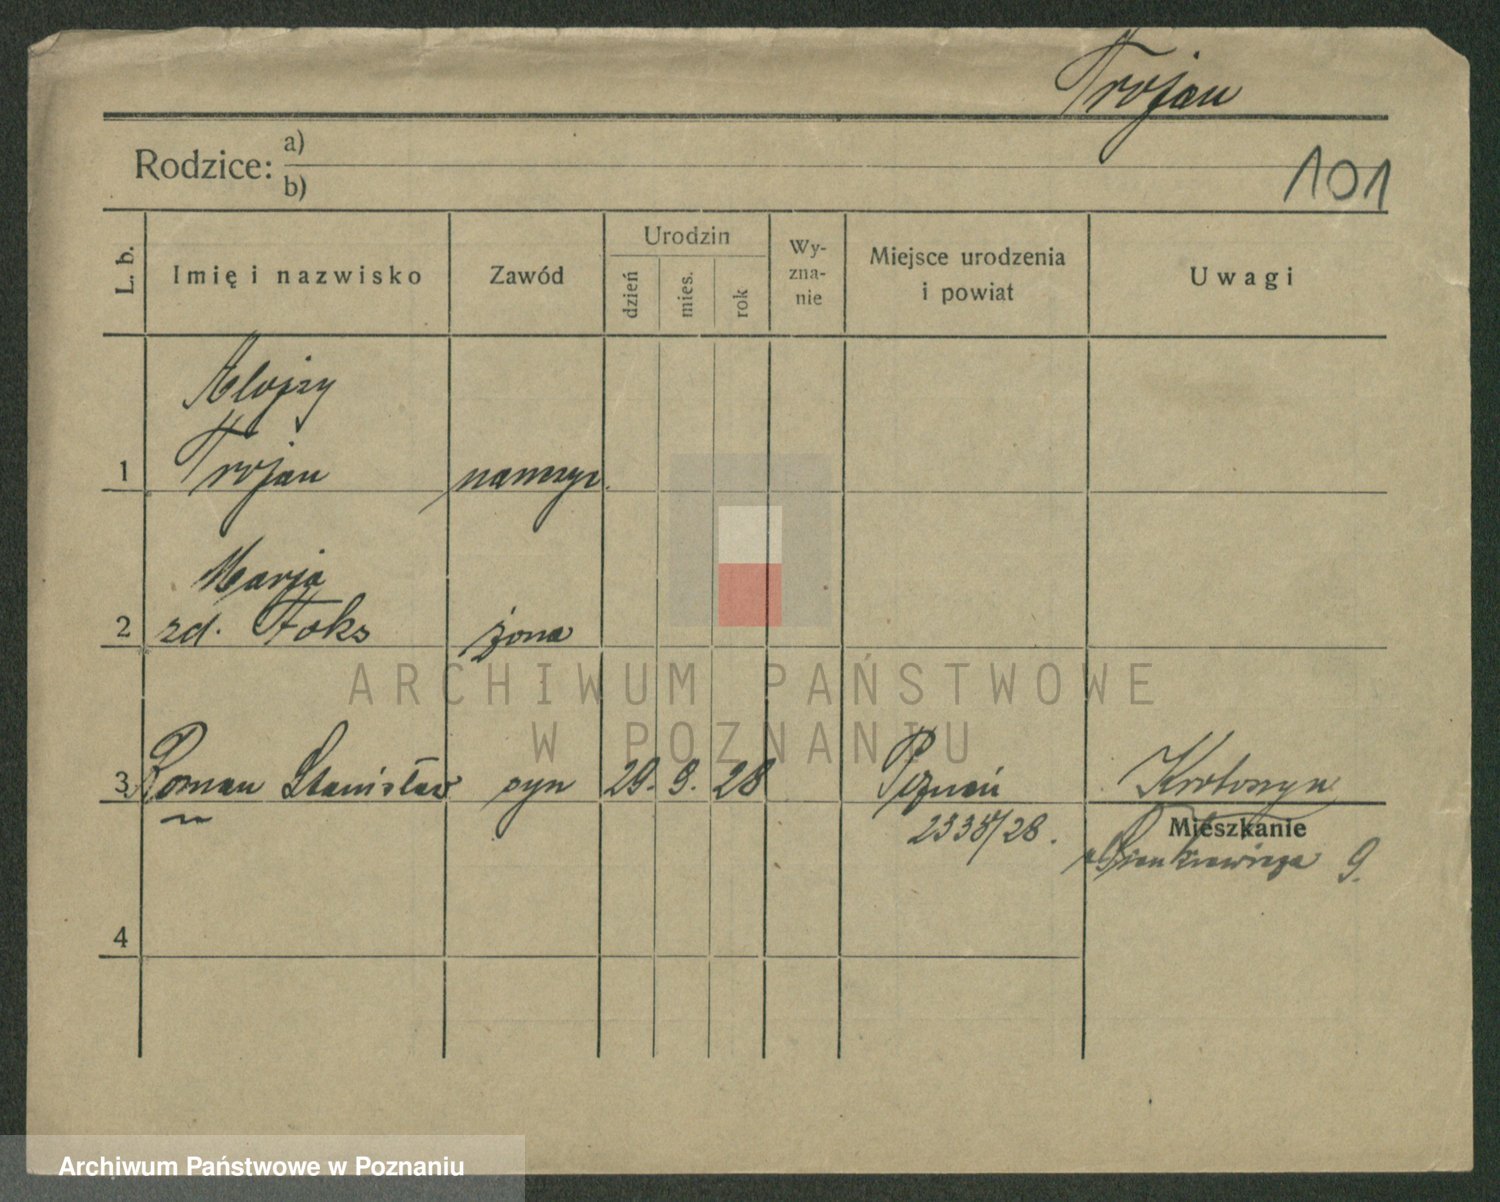 Trojan
Rodzice: a)
b)
101
L. b.
Imię i nazwisko
Zawód
Urodzin
dzień
mies.
rok
Wy-
zna-
nie
Miejsce urodzenia
i powiat
Uwagi
Alojzy
1 Trojan
Marja
2 zd. Foks żona
3 Roman Stanisław syn 29. 9. 28 Poznań Krotoszyn
2338/28.
Mieszkanie
Sienkiewicza 9.
4
ARCHIWUM PAŃSTWOWE
W POZNANIU
Archiwum Państwowe w Poznaniu